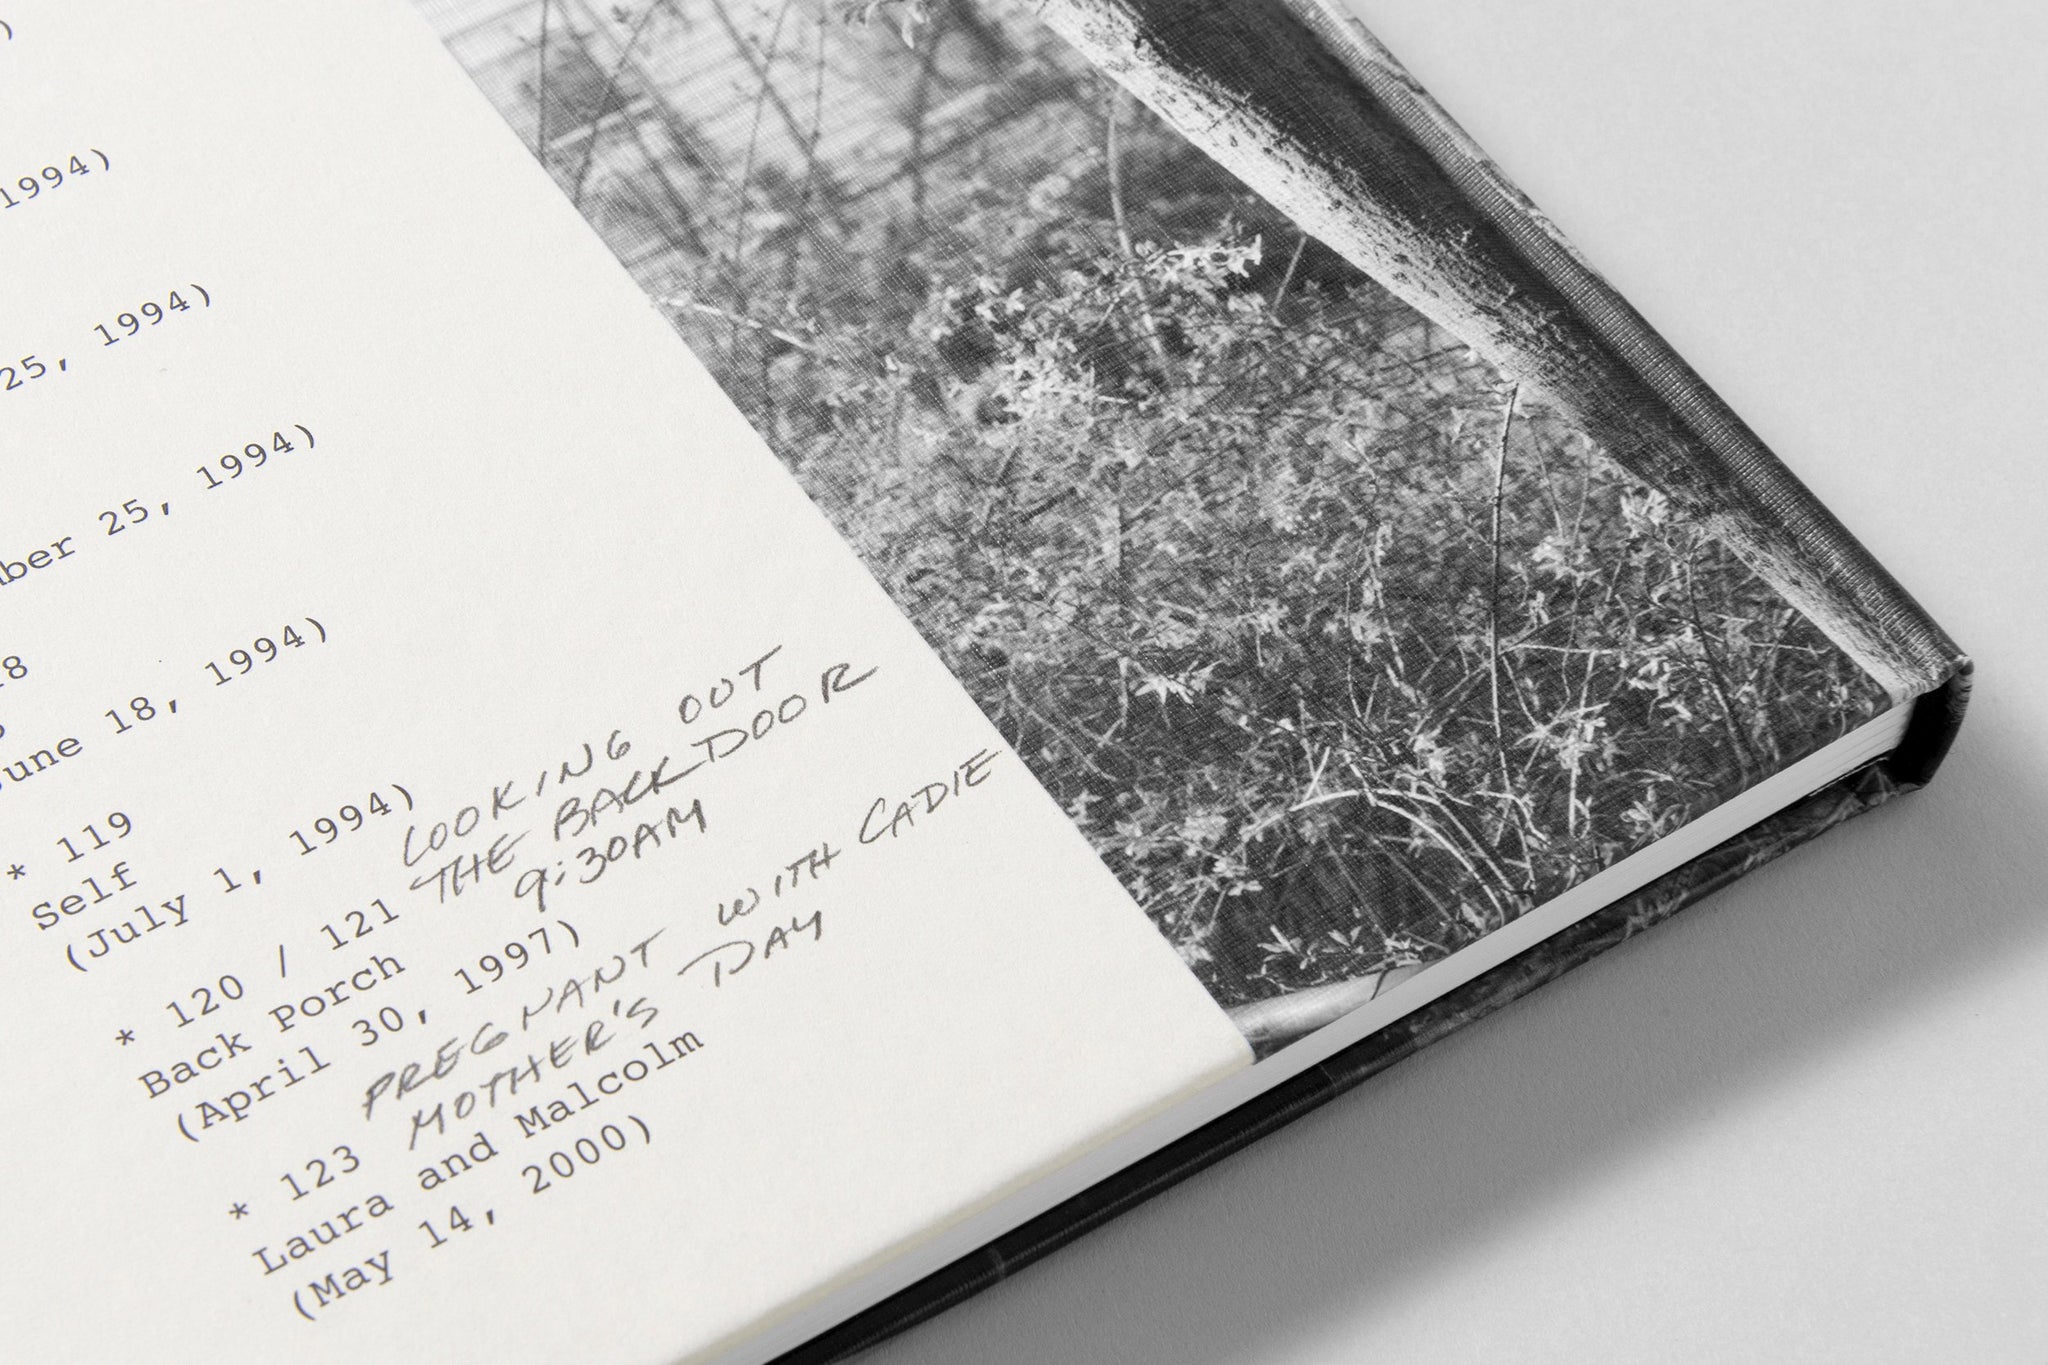 1994)
25, 1994)
ber 25, 1994)
18, 1994)
* 119
Self
(July 1, 1994)
LOOKING OUT
THE BACK DOOR
9:30AM
* 120 / 121
Back Porch
(April 30, 1997)
PREGNANT WITH CADIE
MOTHER'S DAY
* 123
Laura and Malcolm
(May 14, 2000)